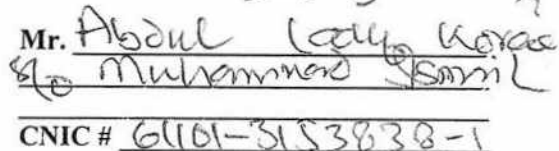 Mr. Abdul
S/o Muhammad Ismail
CNIC # 61101-3153838-1